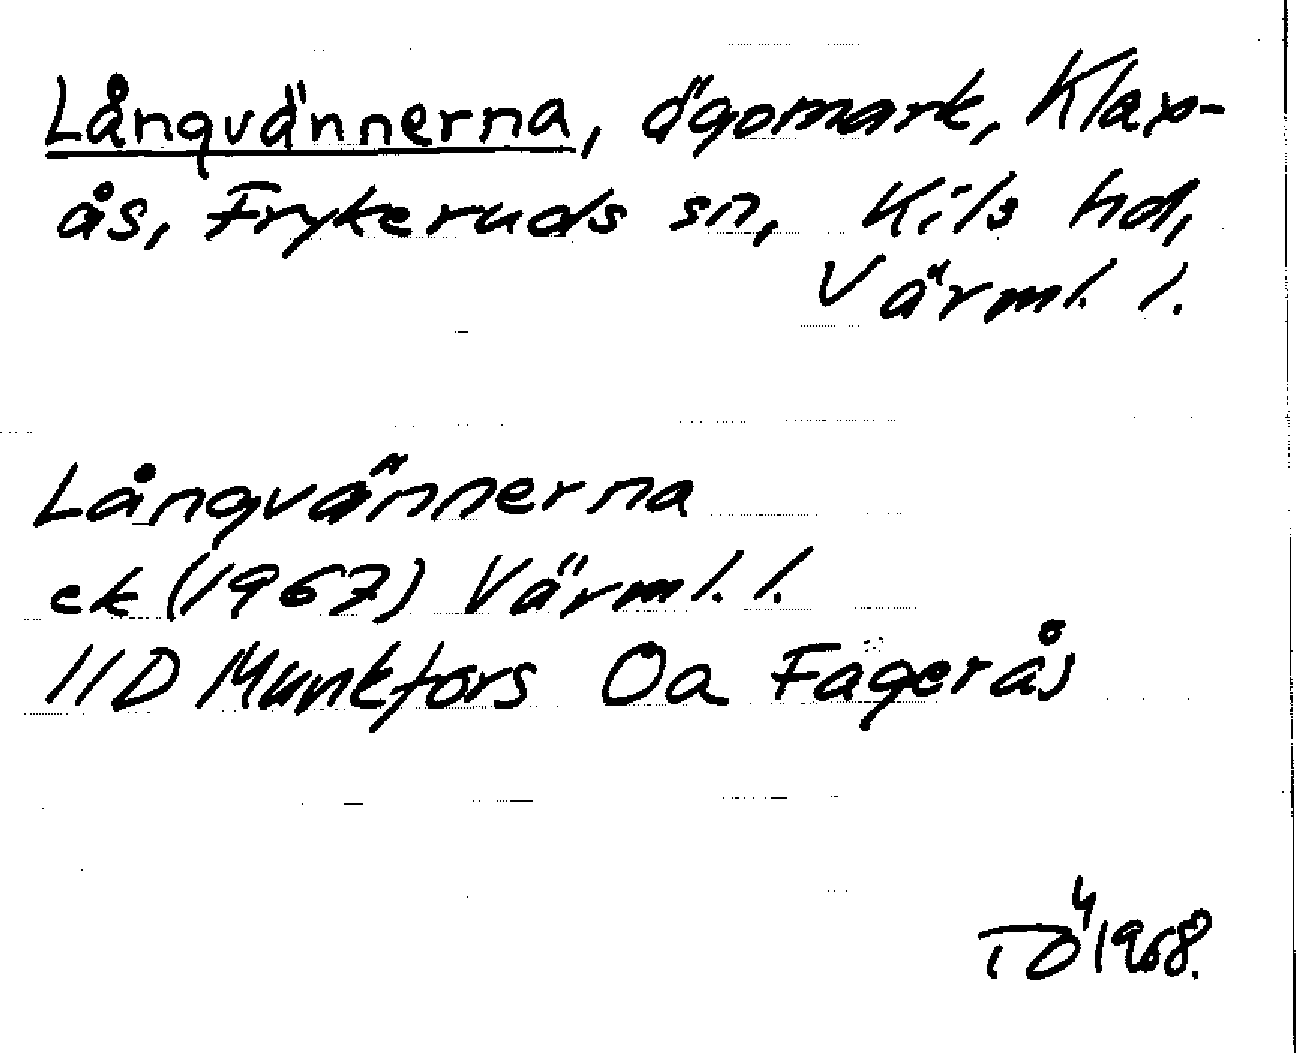 Långvännerna, ägomark, Klax-
ås, Frykeruds sn, Kils hd,
Värml. l.
Långvännerna
ek (1967) Värml. l.
11D Munkfors Oa Fagerås
TÖ 1968.